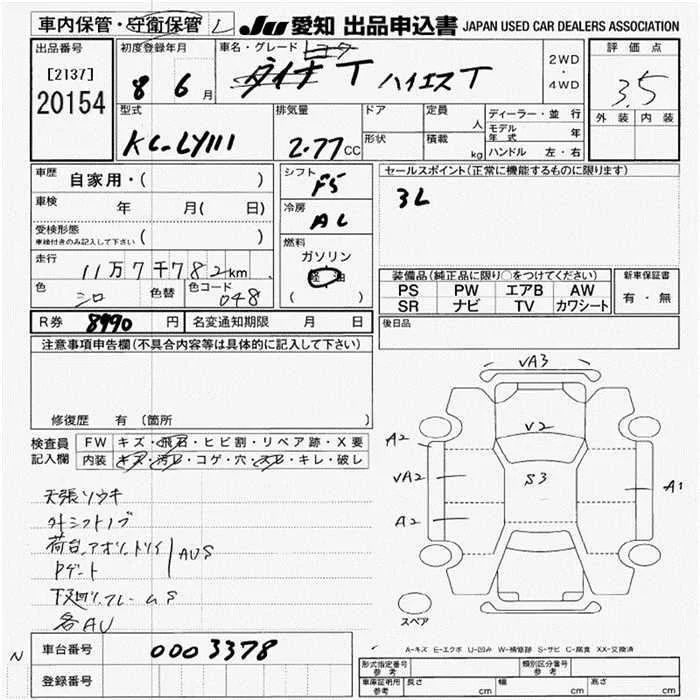 車内保管・守衛保管 L
JU 愛知 出品申込書 JAPAN USED CAR DEALERS ASSOCIATION
出品番号
[2137]
20154
初度登録年月
8 6月
車名・グレード トヨタ
ダイナ T ハイエースT
2WD
・
4WD
評価点
3.5
外装 内装
型式
KC-LY111
排気量
2.77CC
ドア
形状
定員 人
積載 kg
ディーラー・並行
モデル年式 年
ハンドル 左・右
車歴 自家用・( )
車検 年 月( 日)
受検形態
車検付きのみ記入して下さい ( )
走行
11万7千782km
色 シロ 色替 色コード 048
シフト F5
冷房 AC
燃料
ガソリン
軽油
( )
セールスポイント(正常に機能するものに限ります)
3L
装備品(純正品に限り〇をつけてください)
PS PW エアB AW
SR ナビ TV カワシート
新車保証書
有・無
R券 8990円 名変通知期限 月 日
後日品
注意事項申告欄(不具合内容等は具体的に記入して下さい)
修復歴 有(箇所 )
検査員記入欄
FW キズ・飛石・ヒビ割・リペア跡・X要
内装 キズ・汚レ・コゲ・穴・スレ・キレ・破レ
天張ソウキ
外シフトノブ
荷台、アオリ、トリイ AUS
Pゲート
下廻り、フレームS
各AU
VA3
V2
A2
VA2
S3
A2
A1
スペア
A-キズ E-エクボ U-凹み W-補修跡 S-サビ C-腐食 XX-交換済
N
車台番号 0003378
登録番号
形式指定番号 参考
類別区分番号 参考
車庫証明用 参考 長さ cm 幅 cm 高さ cm